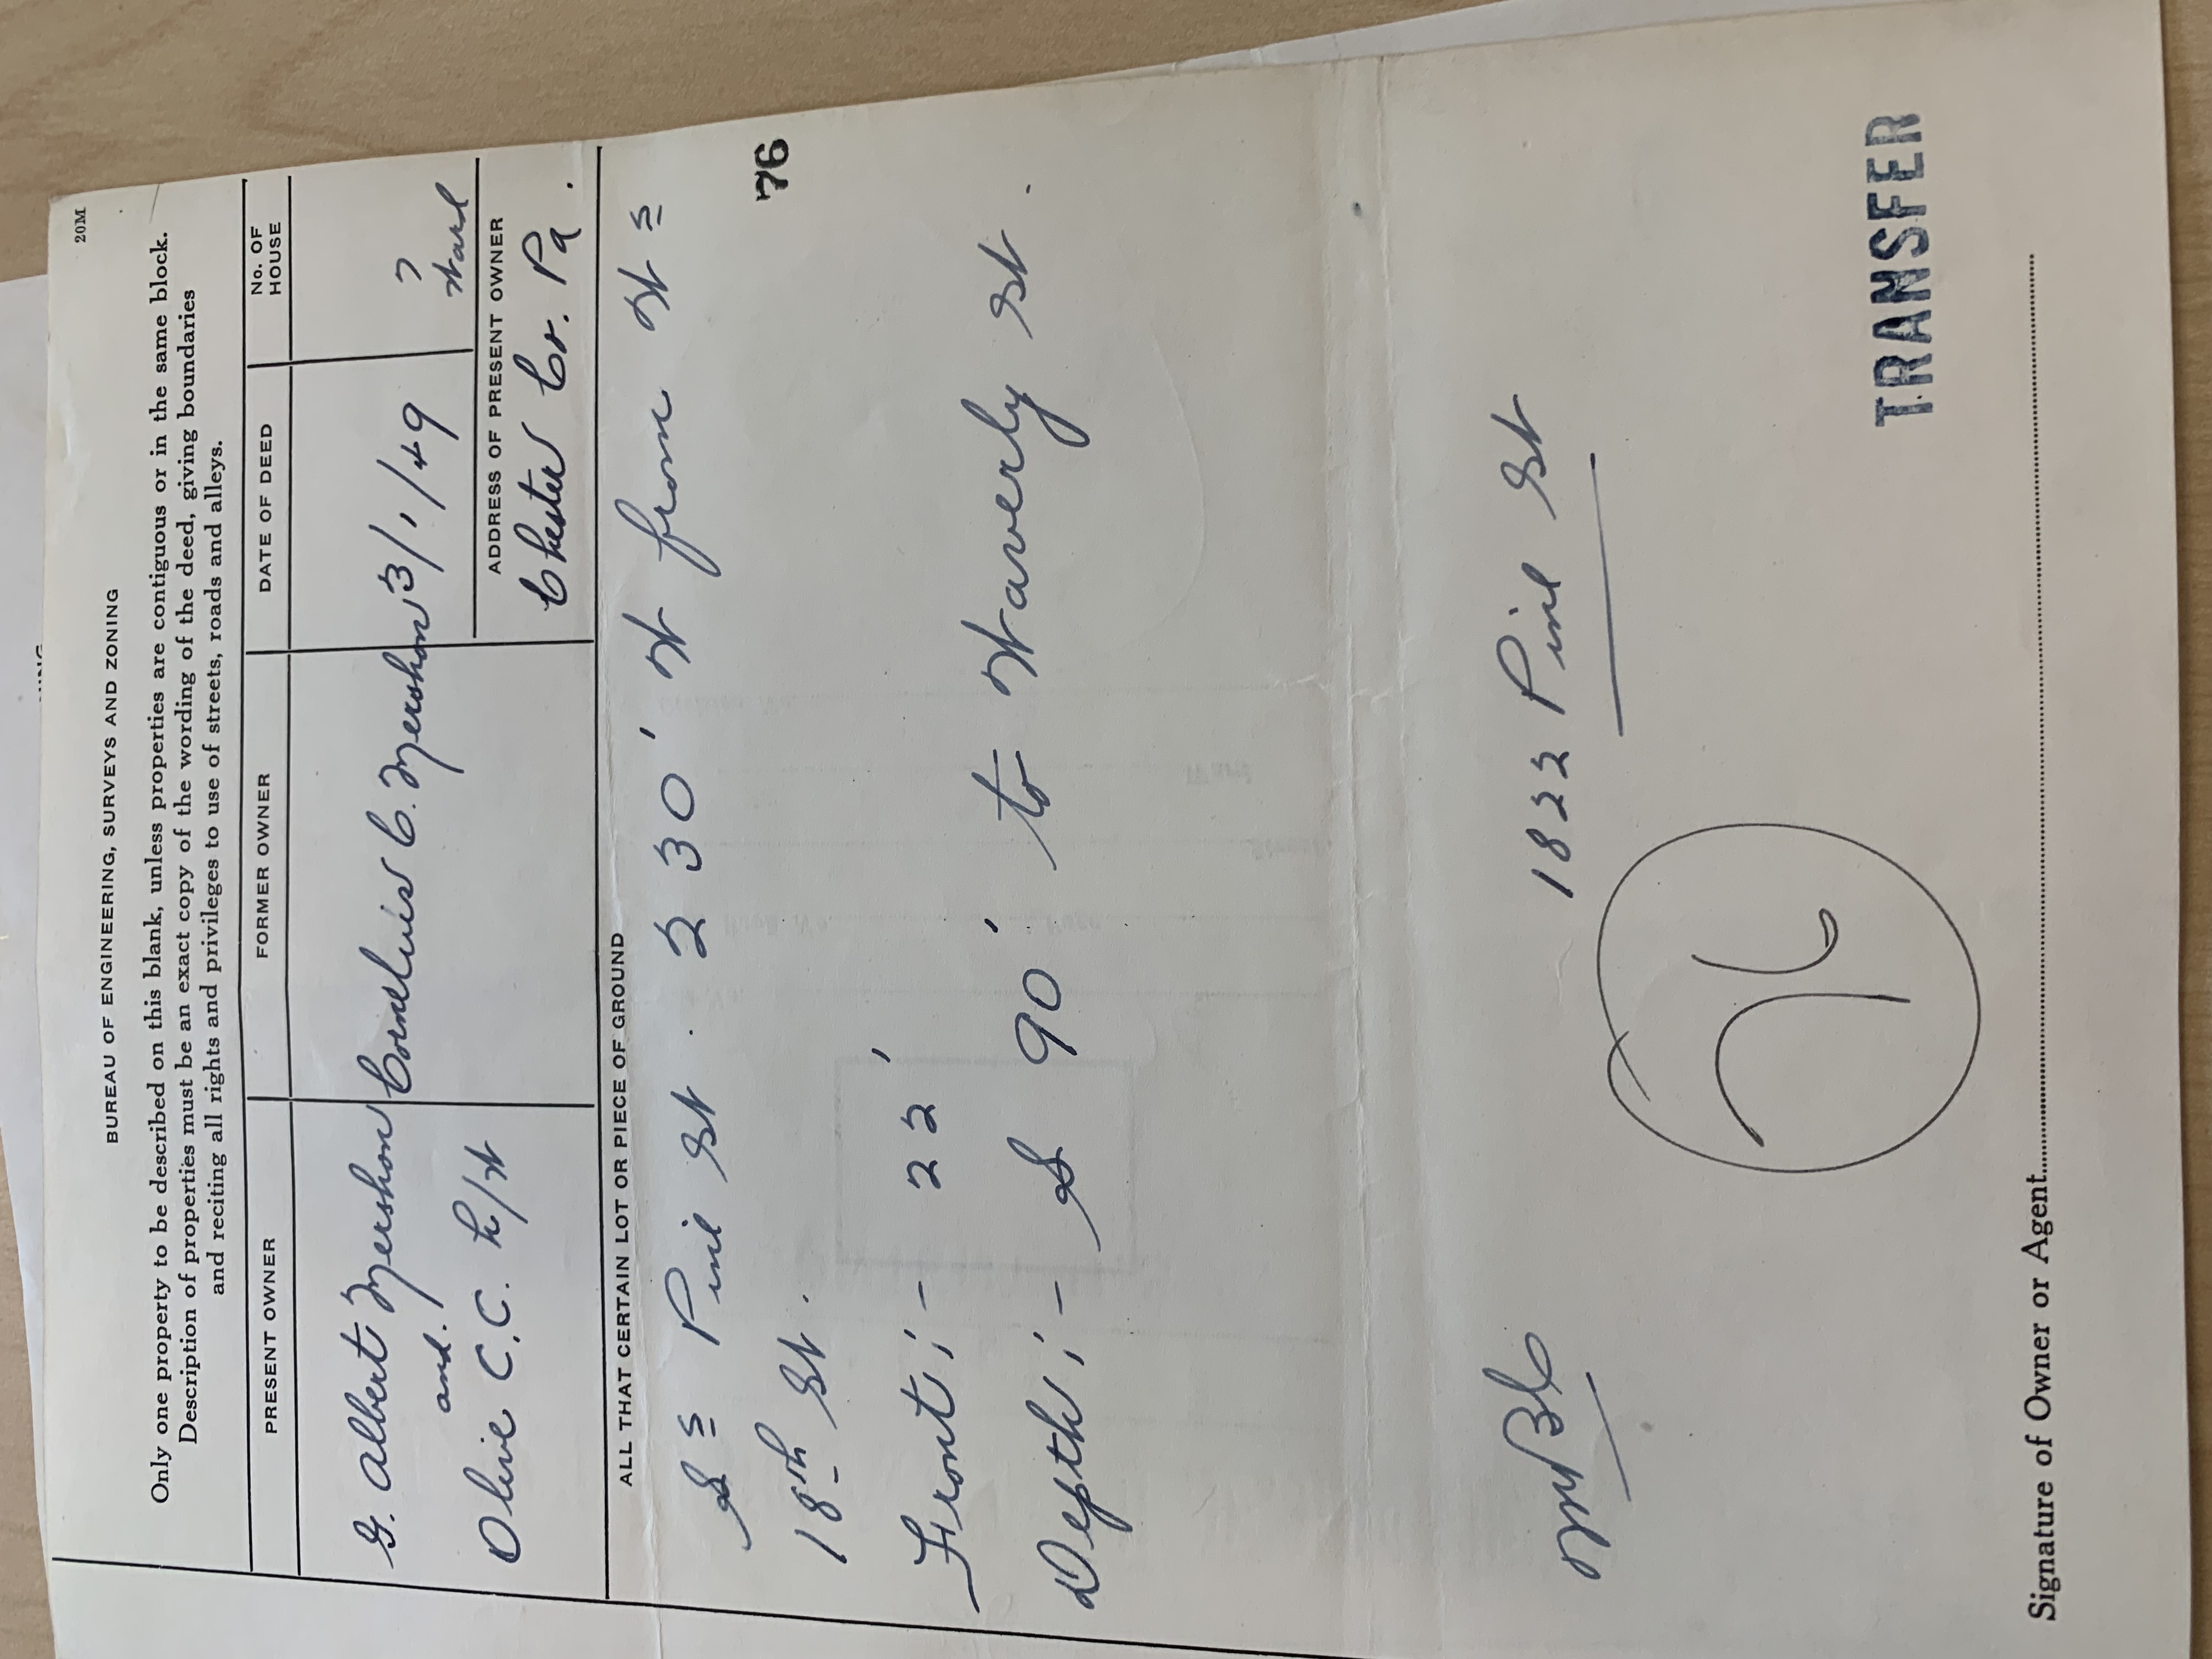 20M
BUREAU OF ENGINEERING, SURVEYS AND ZONING
Only one property to be described on this blank, unless properties are contiguous or in the same block.
Description of properties must be an exact copy of the wording of the deed, giving boundaries
and reciting all rights and privileges to use of streets, roads and alleys.
PRESENT OWNER FORMER OWNER DATE OF DEED No. OF HOUSE
G. Albert Mershon Cornelius C. Mershon 3/1/49 7
and. Ward
Olive C.C. h/w
ADDRESS OF PRESENT OWNER
Chester Co. Pa.
ALL THAT CERTAIN LOT OR PIECE OF GROUND
S s Pine St. 230' W from W s
18th St.
76
Front;- 22'
Depth;- S 90' to Waverly St.
1822 Pine St
TRANSFER
Signature of Owner or Agent